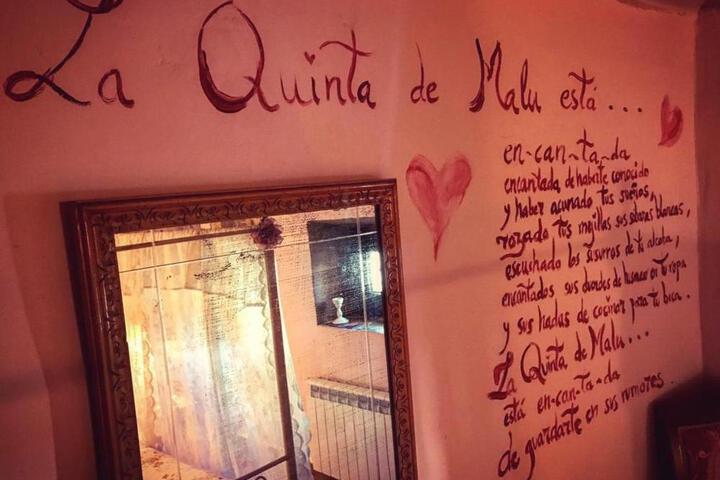 La Quinta de Malu está...
en-can-ta-da
encantada de haberte conocido
y haber acunado tus sueños,
rozado tus mejillas sus sábanas blancas,
escuchado los susurros de tu alcoba,
encantados sus duendes de lamer tu ropa
y sus hadas de cocinar para tu boca.
La Quinta de Malu...
está en-can-ta-da
de guardarte en sus rumores.